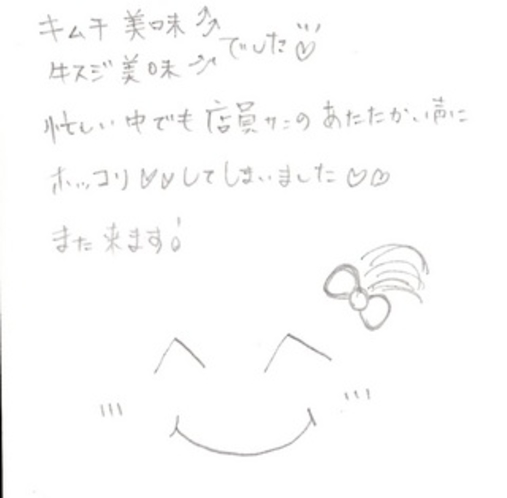 キムチ 美味⤴
牛スジ 美味⤴ でした♡
忙しい中でも店員サンのあたたかい声に
ホッコリ♡♡してしまいました♡♡
また来ます!